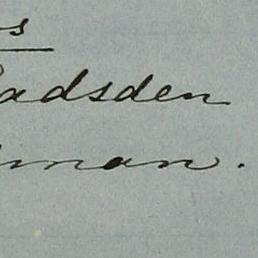 s
adsden
man.